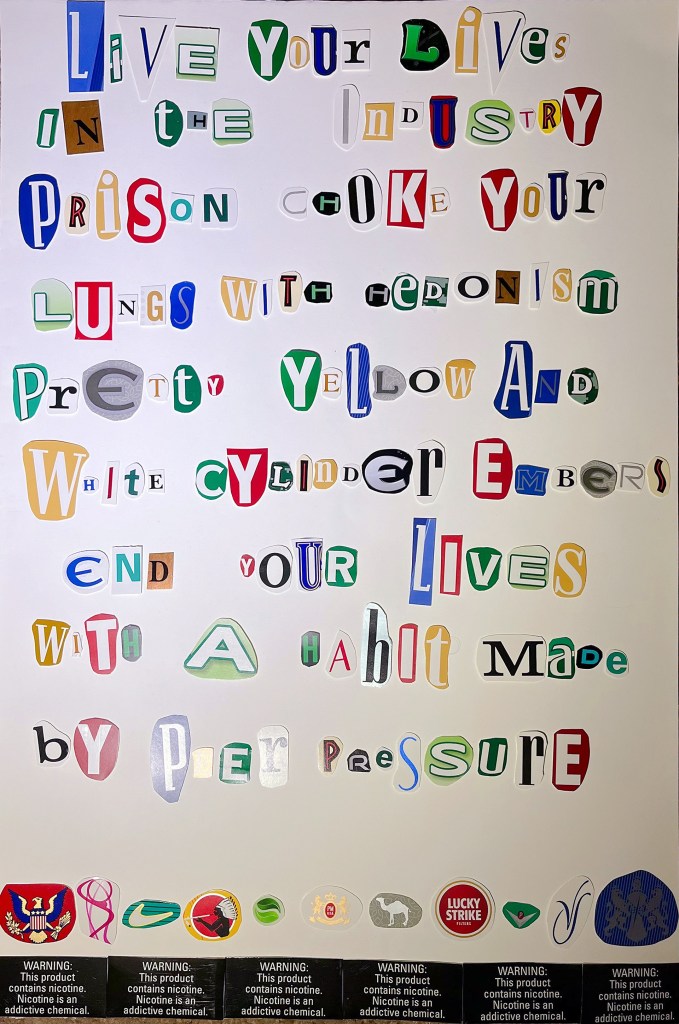 LiVE YOUR LiVes
IN tHE INDUSTRY
PRiSON CHOKE YOUr
LUNGS WITH HeDONISm
PrEttY YELLOW AND
WHItE CYLINDEr EMBERS
END YOUR LIVES
WITH A HAbIt MADe
bY PIER PRESSUrE
PM
LUCKY
STRIKE
FILTERS
WARNING: WARNING: WARNING: WARNING: WARNING: WARNING:
This product This product This product This product This product This product
contains nicotine. contains nicotine. contains nicotine. contains nicotine. contains nicotine. contains nicotine.
Nicotine is an Nicotine is an Nicotine is an Nicotine is an Nicotine is an Nicotine is an
addictive chemical. addictive chemical. addictive chemical. addictive chemical. addictive chemical. addictive chemical.